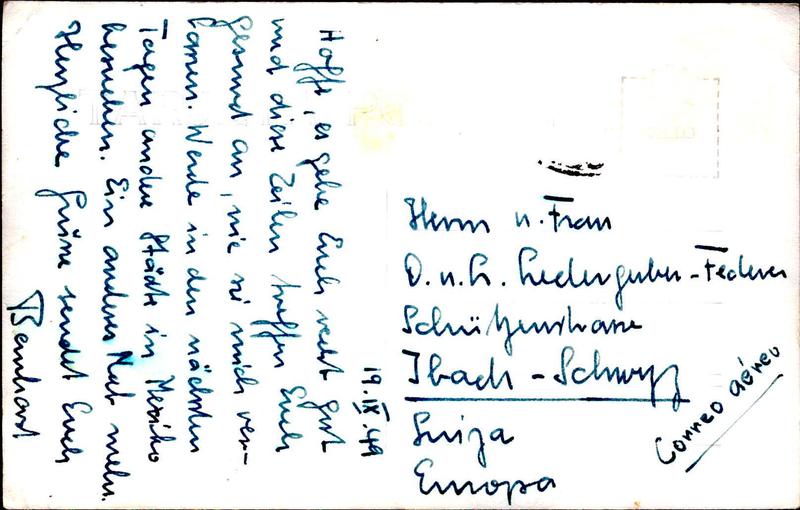 19.IX.49
Hoffe, es gehe Euch recht gut
und diese Zeilen treffen Euch
gesund an, wie sie mich ver-
lassen. Werde in den nächsten
Tagen andere Städte in Mexiko
besuchen. Ein anderes Mal mehr.
Herzliche Grüsse sendet Euch
Bernhard
Herrn u. Frau
D. u. L. Ledergerber-Federer
Schützenstrasse
Ibach - Schwyz
Suiza
Europa
Correo aéreo